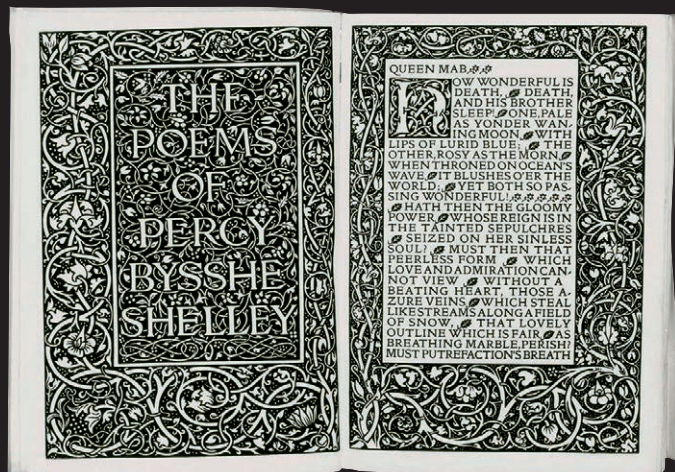 THE
POEMS
OF
PERCY
BYSSHE
SHELLEY
QUEEN MAB
HOW WONDERFUL IS
DEATH, DEATH,
AND HIS BROTHER
SLEEP! ONE, PALE
AS YONDER WAN-
ING MOON, WITH
LIPS OF LURID BLUE; THE
OTHER, ROSY AS THE MORN
WHEN THRONED ON OCEAN'S
WAVE, IT BLUSHES O'ER THE
WORLD; YET BOTH SO PAS-
SING WONDERFUL!
HATH THEN THE GLOOMY
POWER, WHOSE REIGN IS IN
THE TAINTED SEPULCHRES
SEIZED ON HER SINLESS
SOUL? MUST THEN THAT
PEERLESS FORM WHICH
LOVE AND ADMIRATION CAN-
NOT VIEW WITHOUT A
BEATING HEART, THOSE A-
ZURE VEINS, WHICH STEAL
LIKE STREAMS ALONG A FIELD
OF SNOW, THAT LOVELY
OUTLINE WHICH IS FAIR AS
BREATHING MARBLE, PERISH?
MUST PUTREFACTION'S BREATH